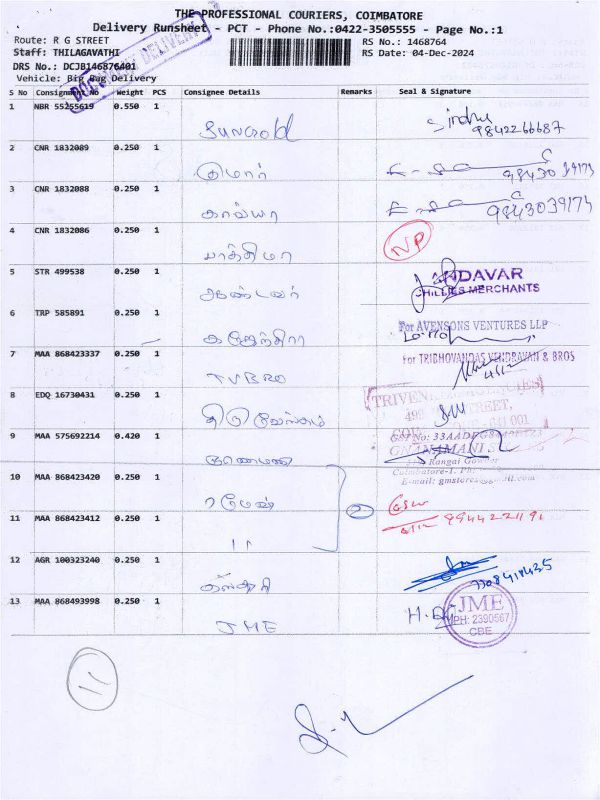 THE PROFESSIONAL COURIERS, COIMBATORE
Delivery Runsheet - PCT - Phone No.:0422-3505555 - Page No.:1
Route: R G STREET
RS No.: 1468764
Staff: THILAGAVATHI
RS Date: 04-Dec-2024
DRS No.: DCJB146876401
Vehicle: Big Bag Delivery
DELIVERY
S No Consignment No Weight PCS Consignee Details Remarks Seal & Signature
1 NBR 55255619 0.550 1
Sungold Sindhu
9842266687
2 CNR 1832089 0.250 1
குமார் 98430 39174
3 CNR 1832088 0.250 1
காவ்யா 9843039174
4 CNR 1832086 0.250 1
பாத்திமா NP
5 STR 499538 0.250 1
ஆண்டவர் ANDAVAR
CHILLIES MERCHANTS
6 TRP 585891 0.250 1
கஜேந்திரா For AVENSONS VENTURES LLP
7 MAA 868423337 0.250 1
TVBRO For TRIBHOVANDAS VENDRAVAN & BROS
8 EDQ 16730431 0.250 1
STREET,
641 001
9 MAA 575692214 0.420 1
ஞானமணி GST No:
GNANAMANI
Rangai Gowder
Coimbatore-1.
E-mail:
10 MAA 868423420 0.250 1
ரமேஷ் 2
11 MAA 868423412 0.250 1
11 9944221191
12 AGR 100323240 0.250 1
கஸ்தூரி
13 MAA 868493998 0.250 1
JME
JME
PH: 2390567
CBE
11